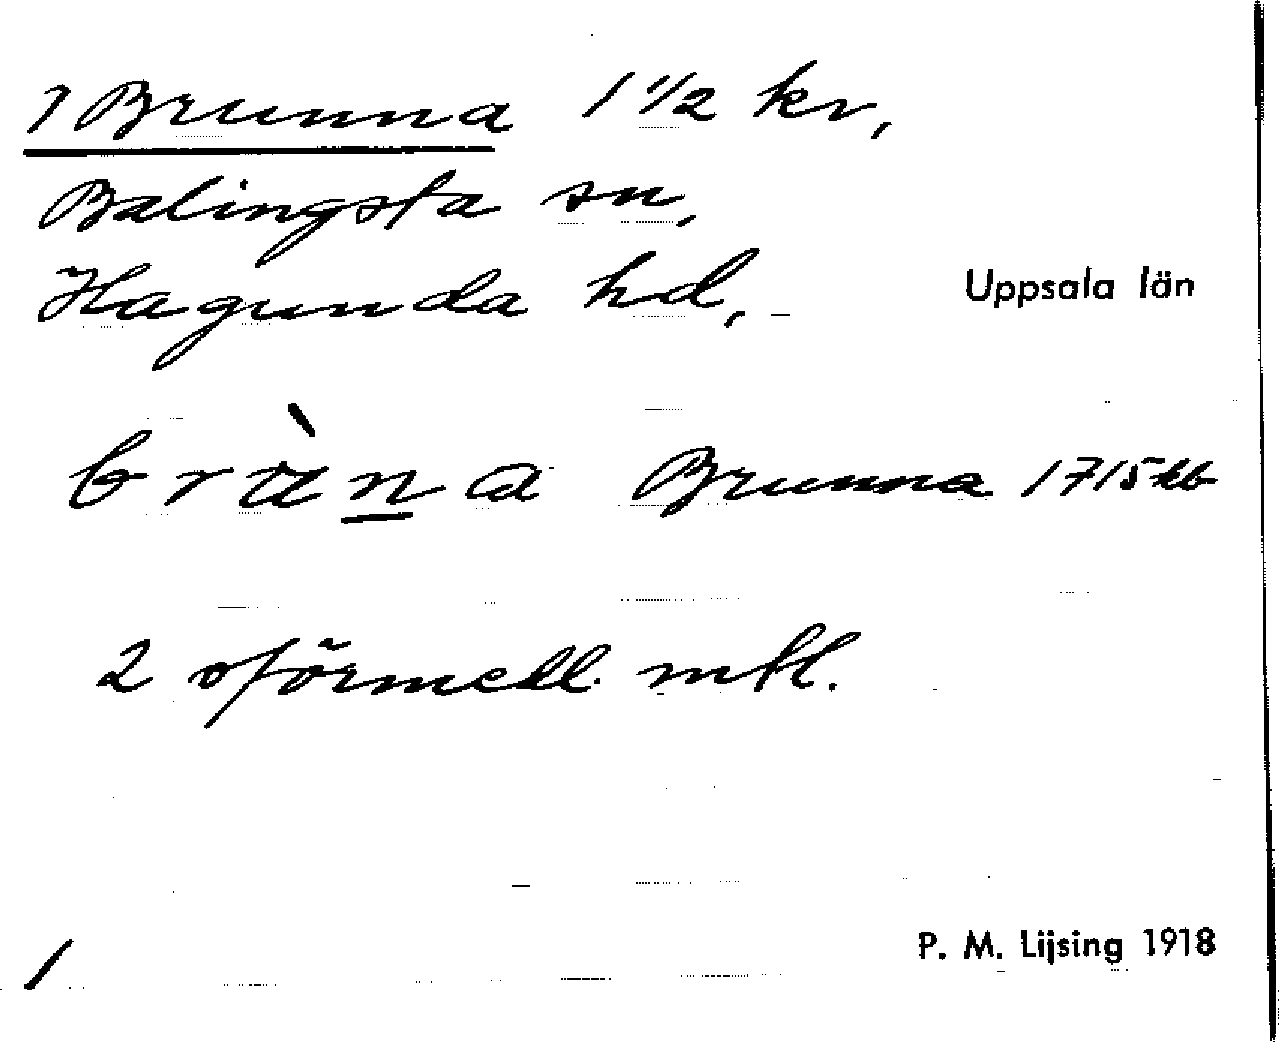 1 Brunna 1 1/2 kr,
Balingsta sn,
Hagunda hd, Uppsala län
brùna Brunna 1715 kb
2 oförmedl. mtl.
1 P. M. Lijsing 1918